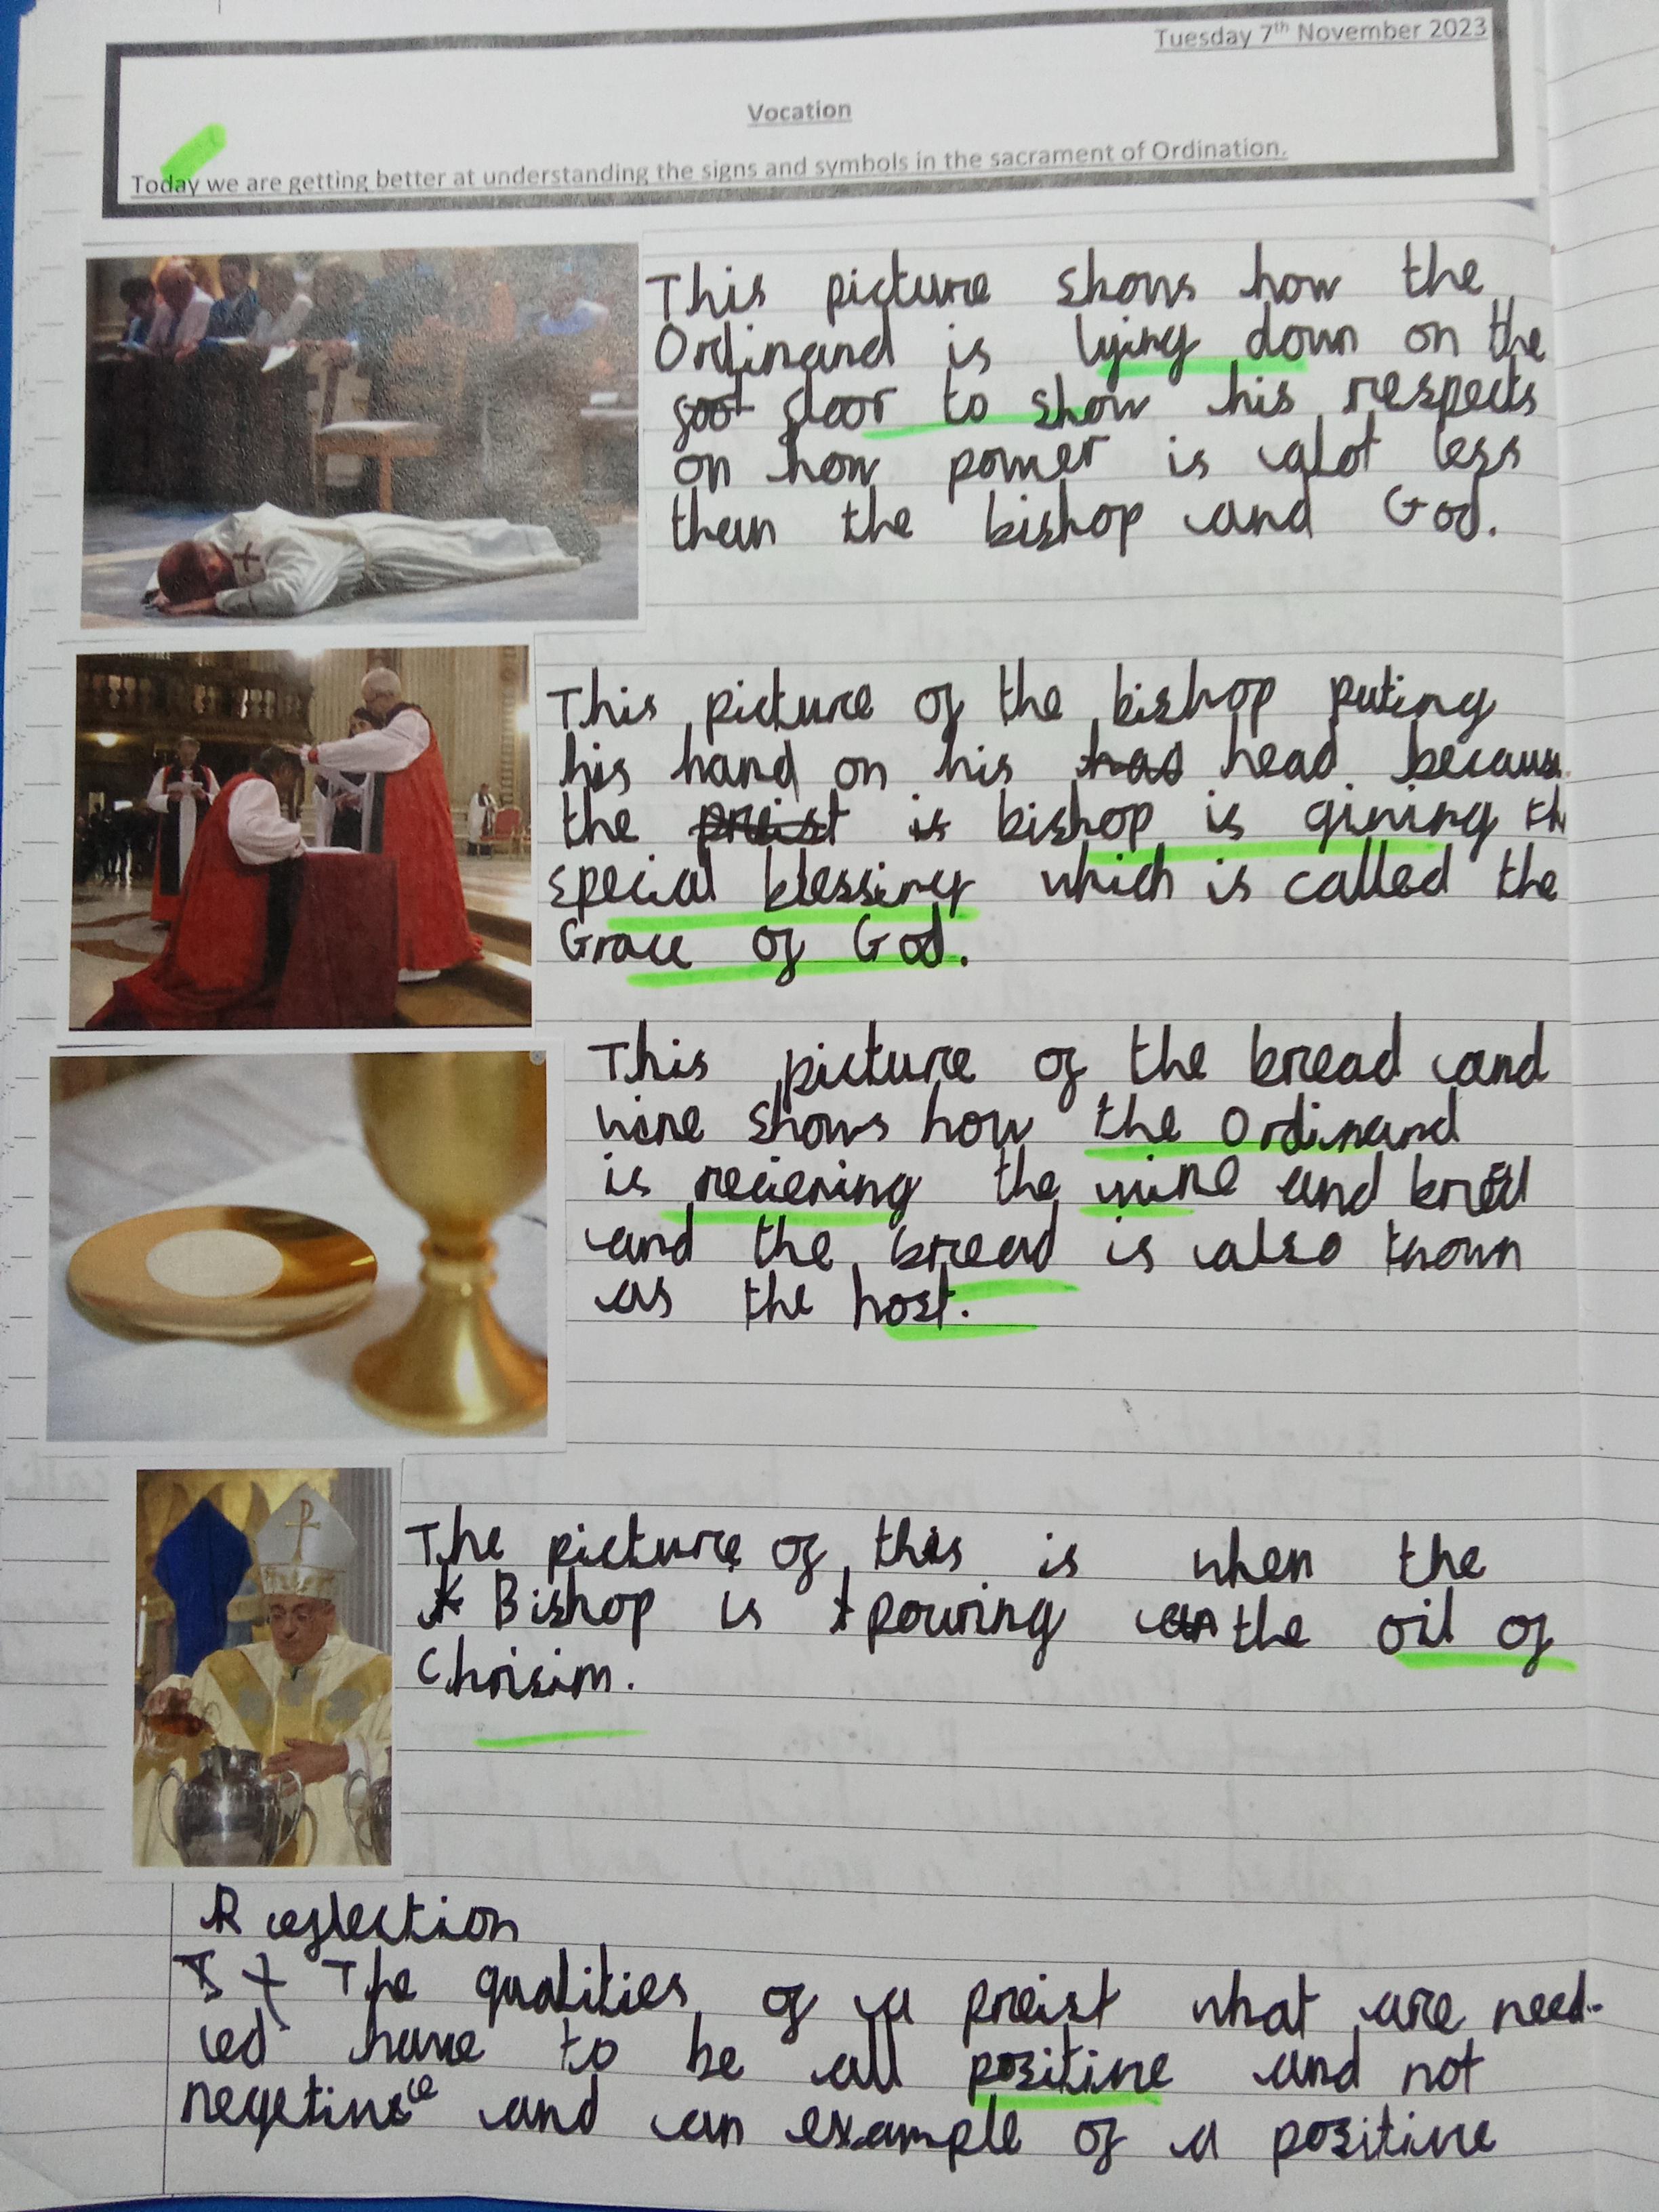 Tuesday 7th November 2023
Vocation
Today we are getting better at understanding the signs and symbols in the sacrament of Ordination.
This picture shows how the
Ordinand is lying down on the
foot floor to show his respects
on how power is alot less
then the bishop and God.
This picture of the bishop puting
his hand on his has head because
the preist is bishop is giving th
special blessing which is called the
Grace of God.
This picture of the bread and
wine shows how the Ordinand
is recieving the wine and
and the bread is also known
as the host.
The picture of this is when the
Bishop is pouring the oil of
Chrisim.
Reflection
The qualities of a preist what are need-
ed have to be all positive and not
negetive and an example of a positive